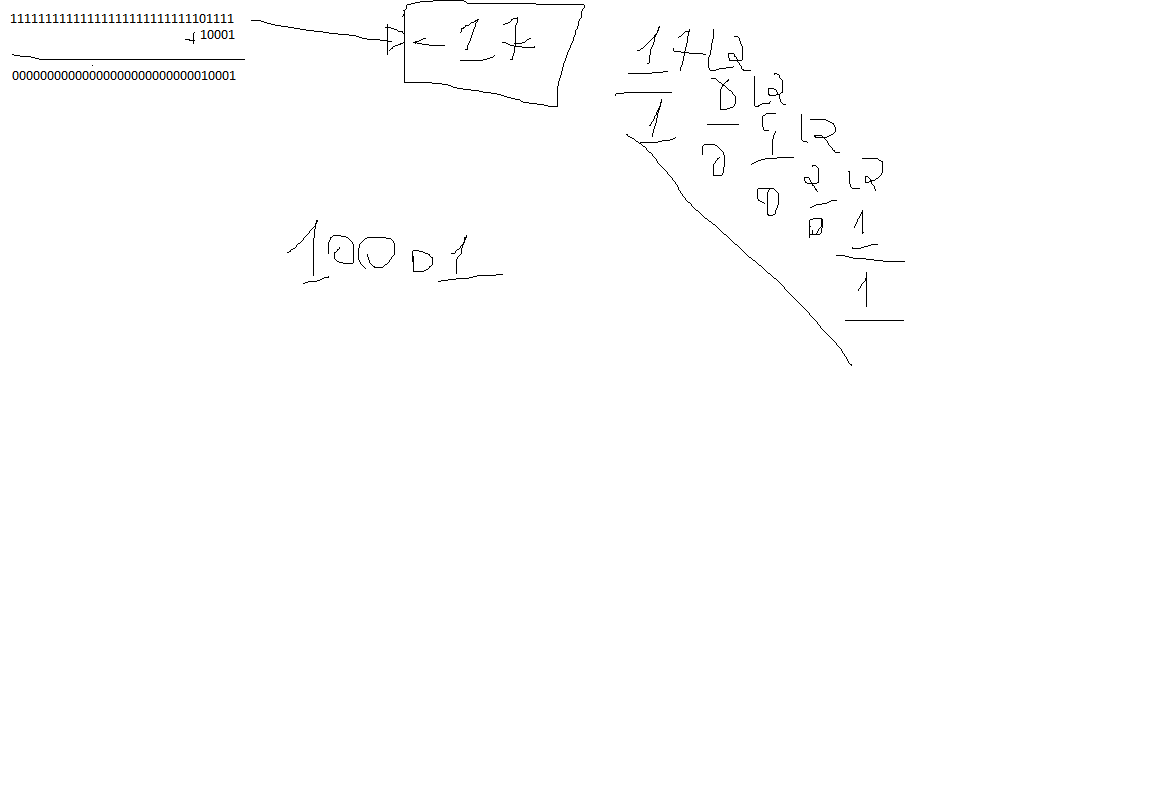 11111111111111111111111111101111
+ 10001
00000000000000000000000000010001
-17
17 L2
1 8 L2
0 4 L2
0 2 L2
0 1
1
10001